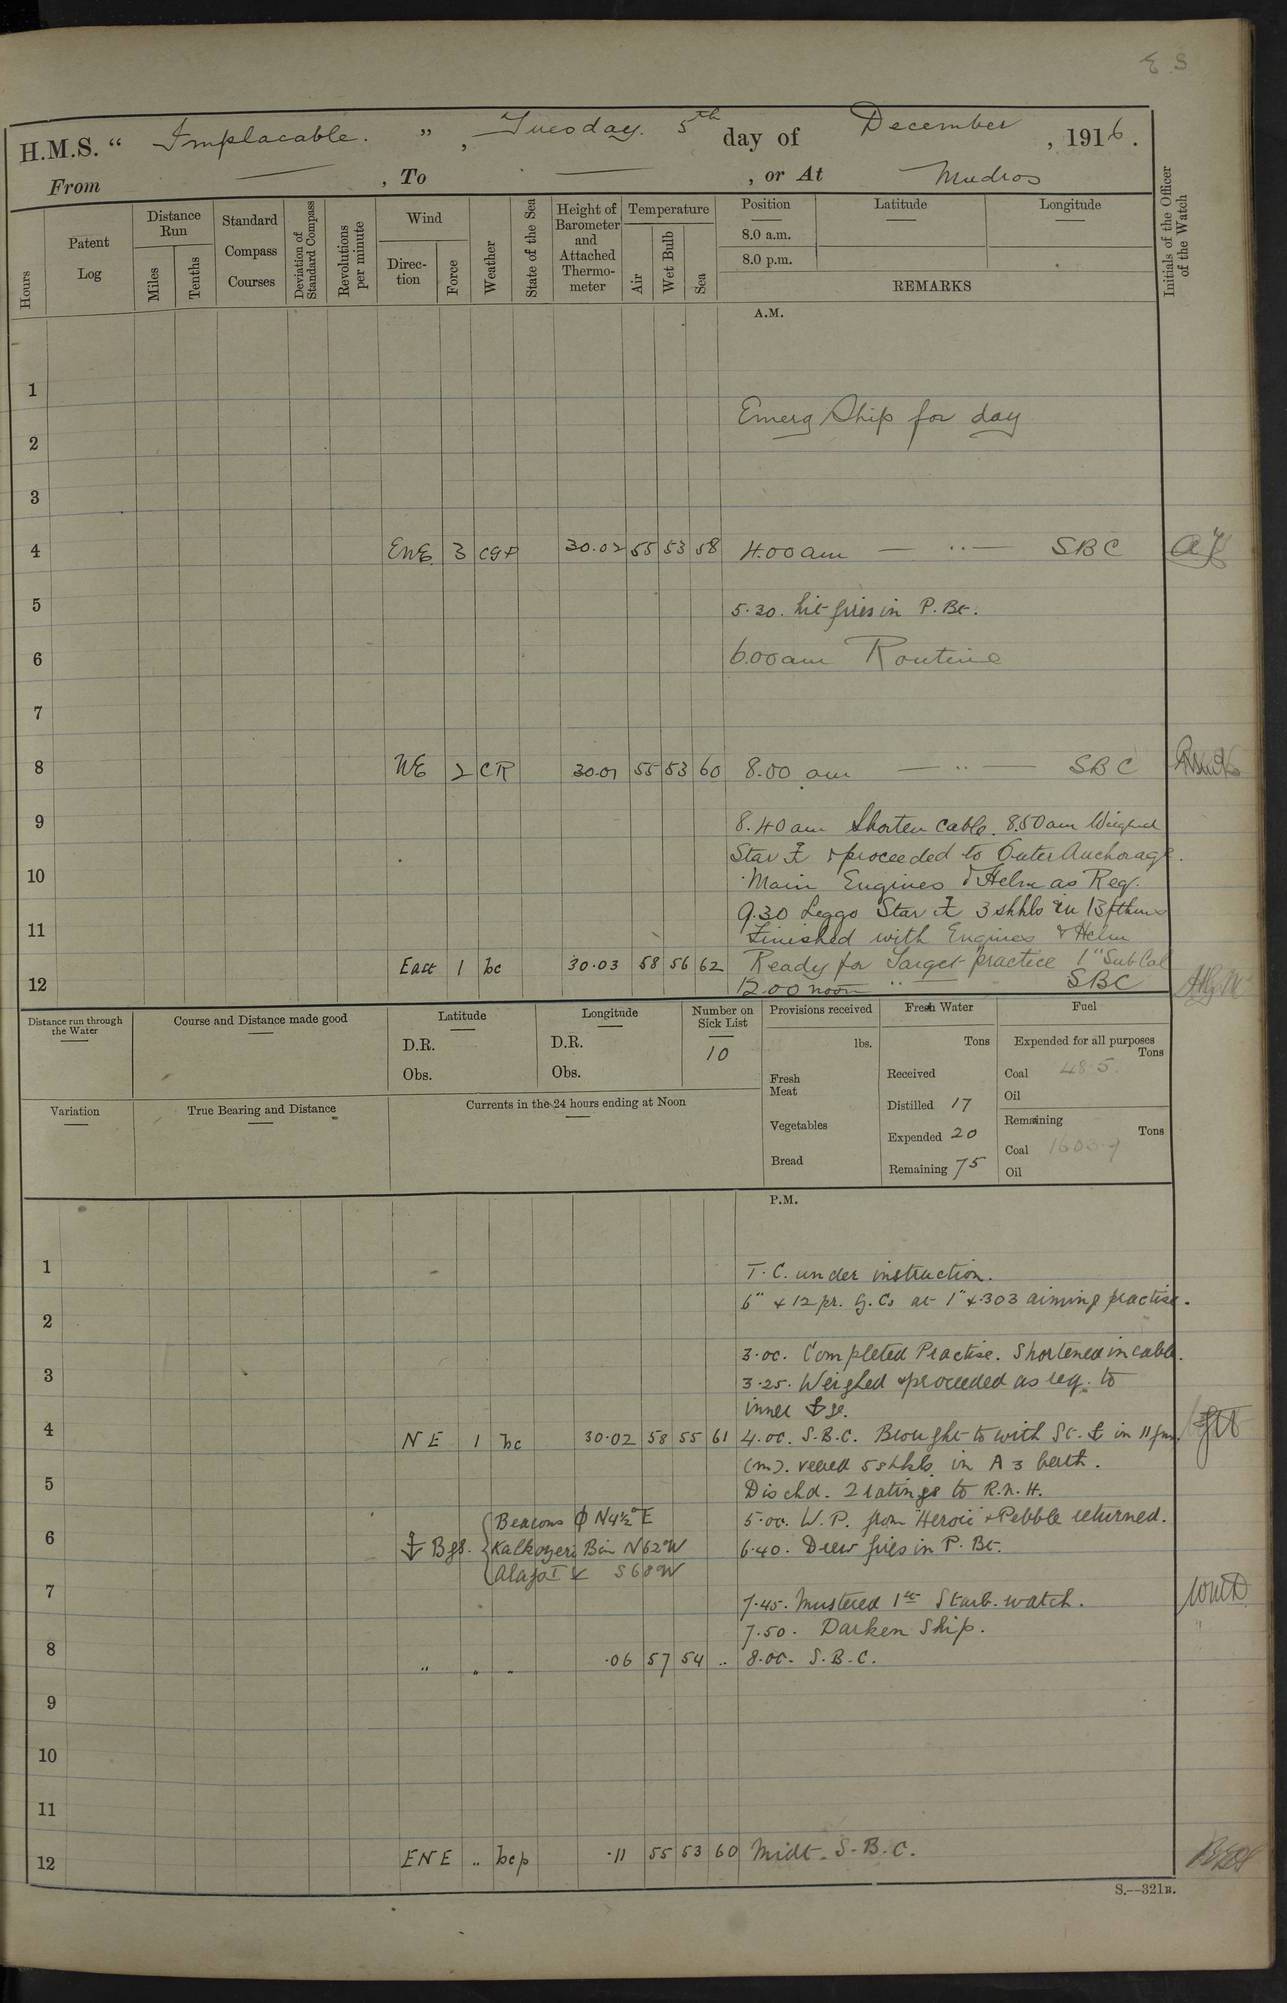 E S
H.M.S. “ Implacable. ” , Tuesday. 5th day of December , 1916.
From — , To — , or At Mudros
Hours
Patent Log
Distance Run
Miles
Tenths
Standard Compass Courses
Deviation of Standard Compass
Revolutions per minute
Wind
Direc-tion
Force
Weather
State of the Sea
Height of Barometer and Attached Thermo-meter
Temperature
Air
Wet Bulb
Sea
Position
8.0 a.m.
8.0 p.m.
Latitude
Longitude
REMARKS
Initials of the Officer of the Watch
A.M.
1
Emerg Ship for day
2
3
4 ENE 3 30.02 55 53 58 4.00 am — ·· — SBC
5 5.30. lit fires in P. Bt.
6 6.00 am Routine
7
8 NE 2 CR 30.01 55 53 60 8.00 am — ·· — SBC
9 8.40 am Shorten Cable. 8.50 am Weighed
Star ⚓ & proceeded to Outer Anchorage.
10 Main Engines & Helm as Req.
9.30 Leggo Star ⚓ 3 shkls in 13 fthms
11 Finished with Engines & Helm
East 1 bc 30.03 58 56 62 Ready for Target practice 1" Sub Cal
12 12.00 noon ·· SBC
Distance run through the Water
Course and Distance made good
Latitude
D.R.
Obs.
Longitude
D.R.
Obs.
Number on Sick List
10
Provisions received
lbs.
Fresh Meat
Vegetables
Bread
Fresh Water
Tons
Received
Distilled 17
Expended 20
Remaining 75
Fuel
Expended for all purposes
Tons
Coal 48.5
Oil
Remaining
Tons
Coal
Oil
Variation
True Bearing and Distance
Currents in the 24 hours ending at Noon
P.M.
1 T.C. under instruction.
6" & 12 pr. G.Cs at 1" & .303 aiming practise.
2
3.00. Completed Practise. Shortened in cable.
3 3.25. Weighed & proceeded as req. to
inner ⚓ge.
4 NE 1 bc 30.02 58 55 61 4.00. S.B.C. Brought to with St. ⚓ in 11 fms.
(m). veered 5 shkls. in A 3 berth.
5 Dischd. 2 ratings to R.N.H.
Beacons ϕ N4½°E 5.00. W.P. from "Heroic" & Pebble returned.
6 ⚓ Bgs. Bcn N62°W 6.40. Drew fires in P. Bt.
S68°W
7
7.45. Mustered 1st Starb. watch.
7.50. Darken Ship.
8 " " " .06 57 54 .. 8.00. S.B.C.
9
10
11
12 ENE .. bcp .11 55 53 60 Midt. S.B.C.
S.—321B.